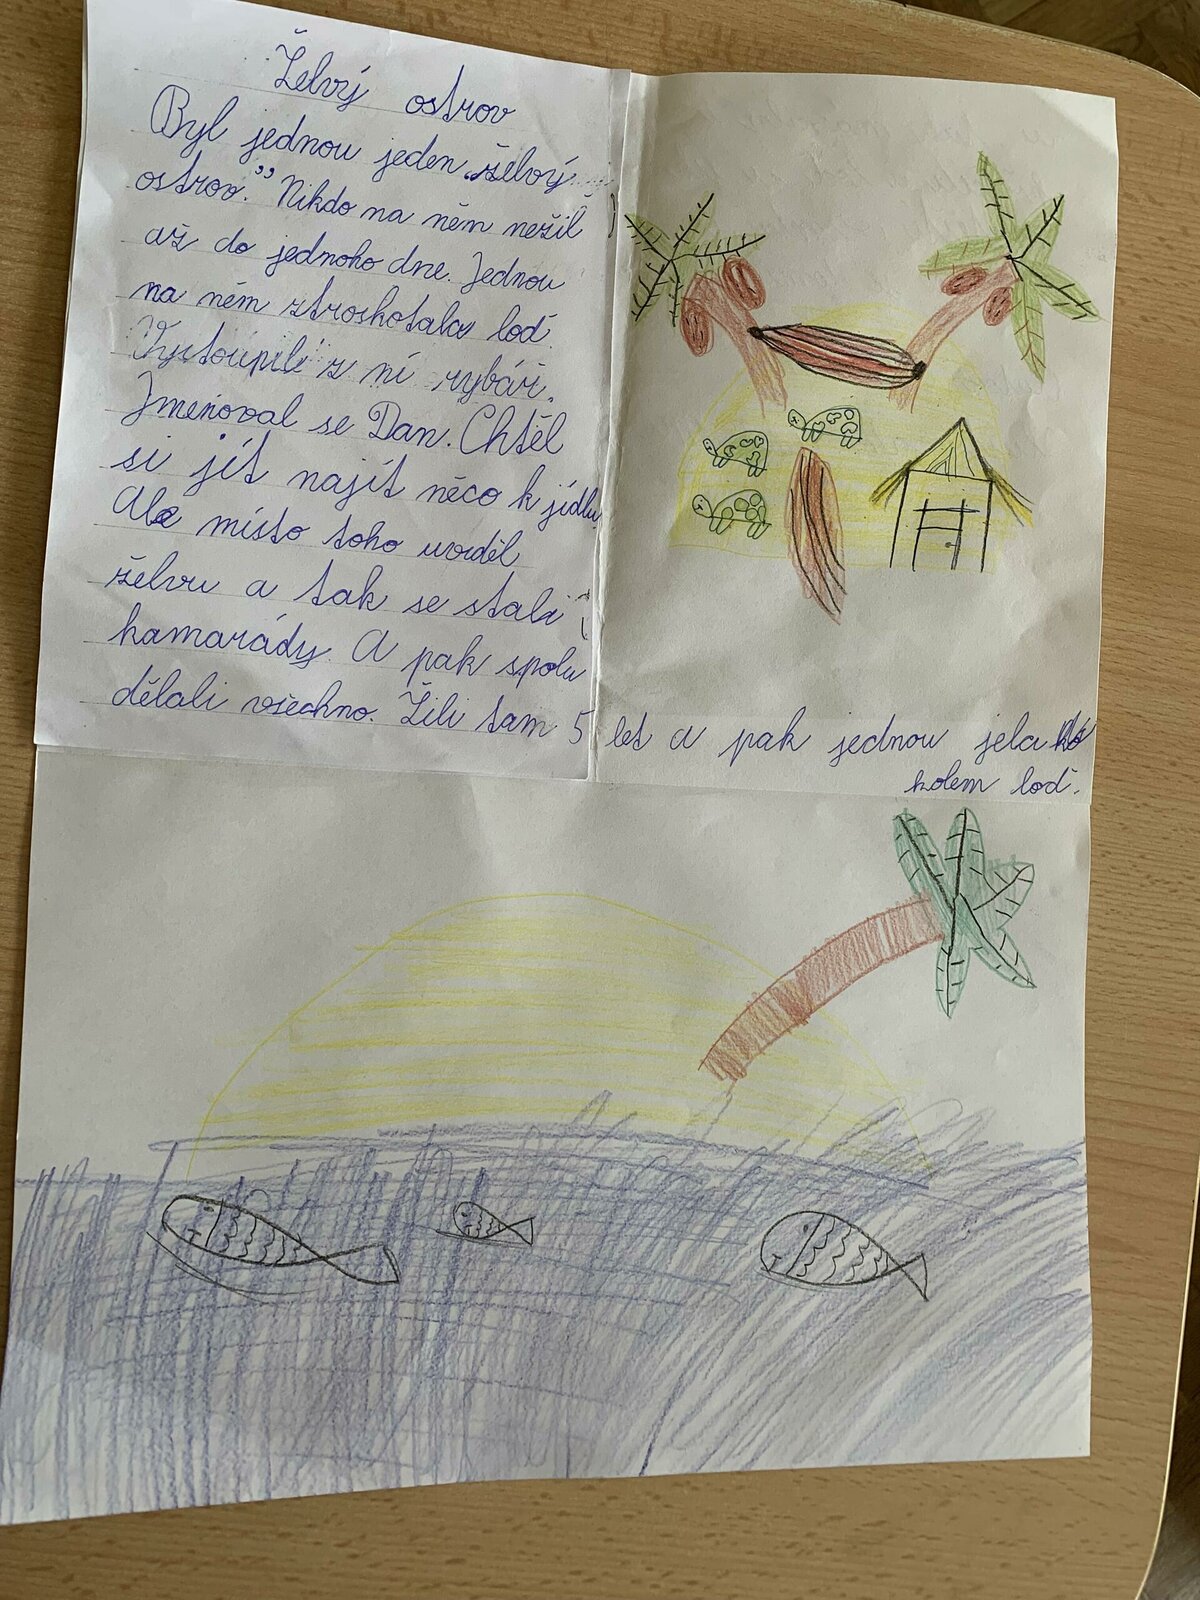 Želvý ostrov
Byl jednou jeden „želvý
ostrov.” Nikdo na něm nežil
až do jednoho dne. Jednou
na něm ztroskotala loď.
Vystoupil z ní rybář.
Jmenoval se Dan. Chtěl
si jít najít něco k jídlu.
Ale místo toho uviděl
želvu a tak se stali
kamarády. A pak spolu
dělali všechno. Žili tam 5 let a pak jednou jela
kolem loď.